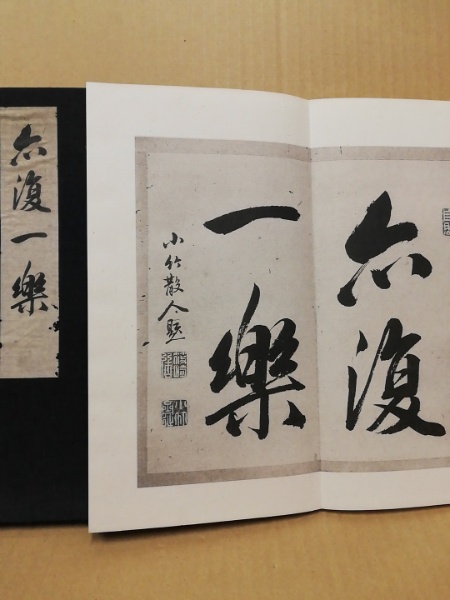 亦復
一樂
小竹散人題
亦復一樂